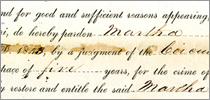 nd for good and sufficient reasons appearing,
ri, do hereby pardon Martha
by a judgment of the Circu
space of five years, for the crime of
y restore and entitle the said Martha